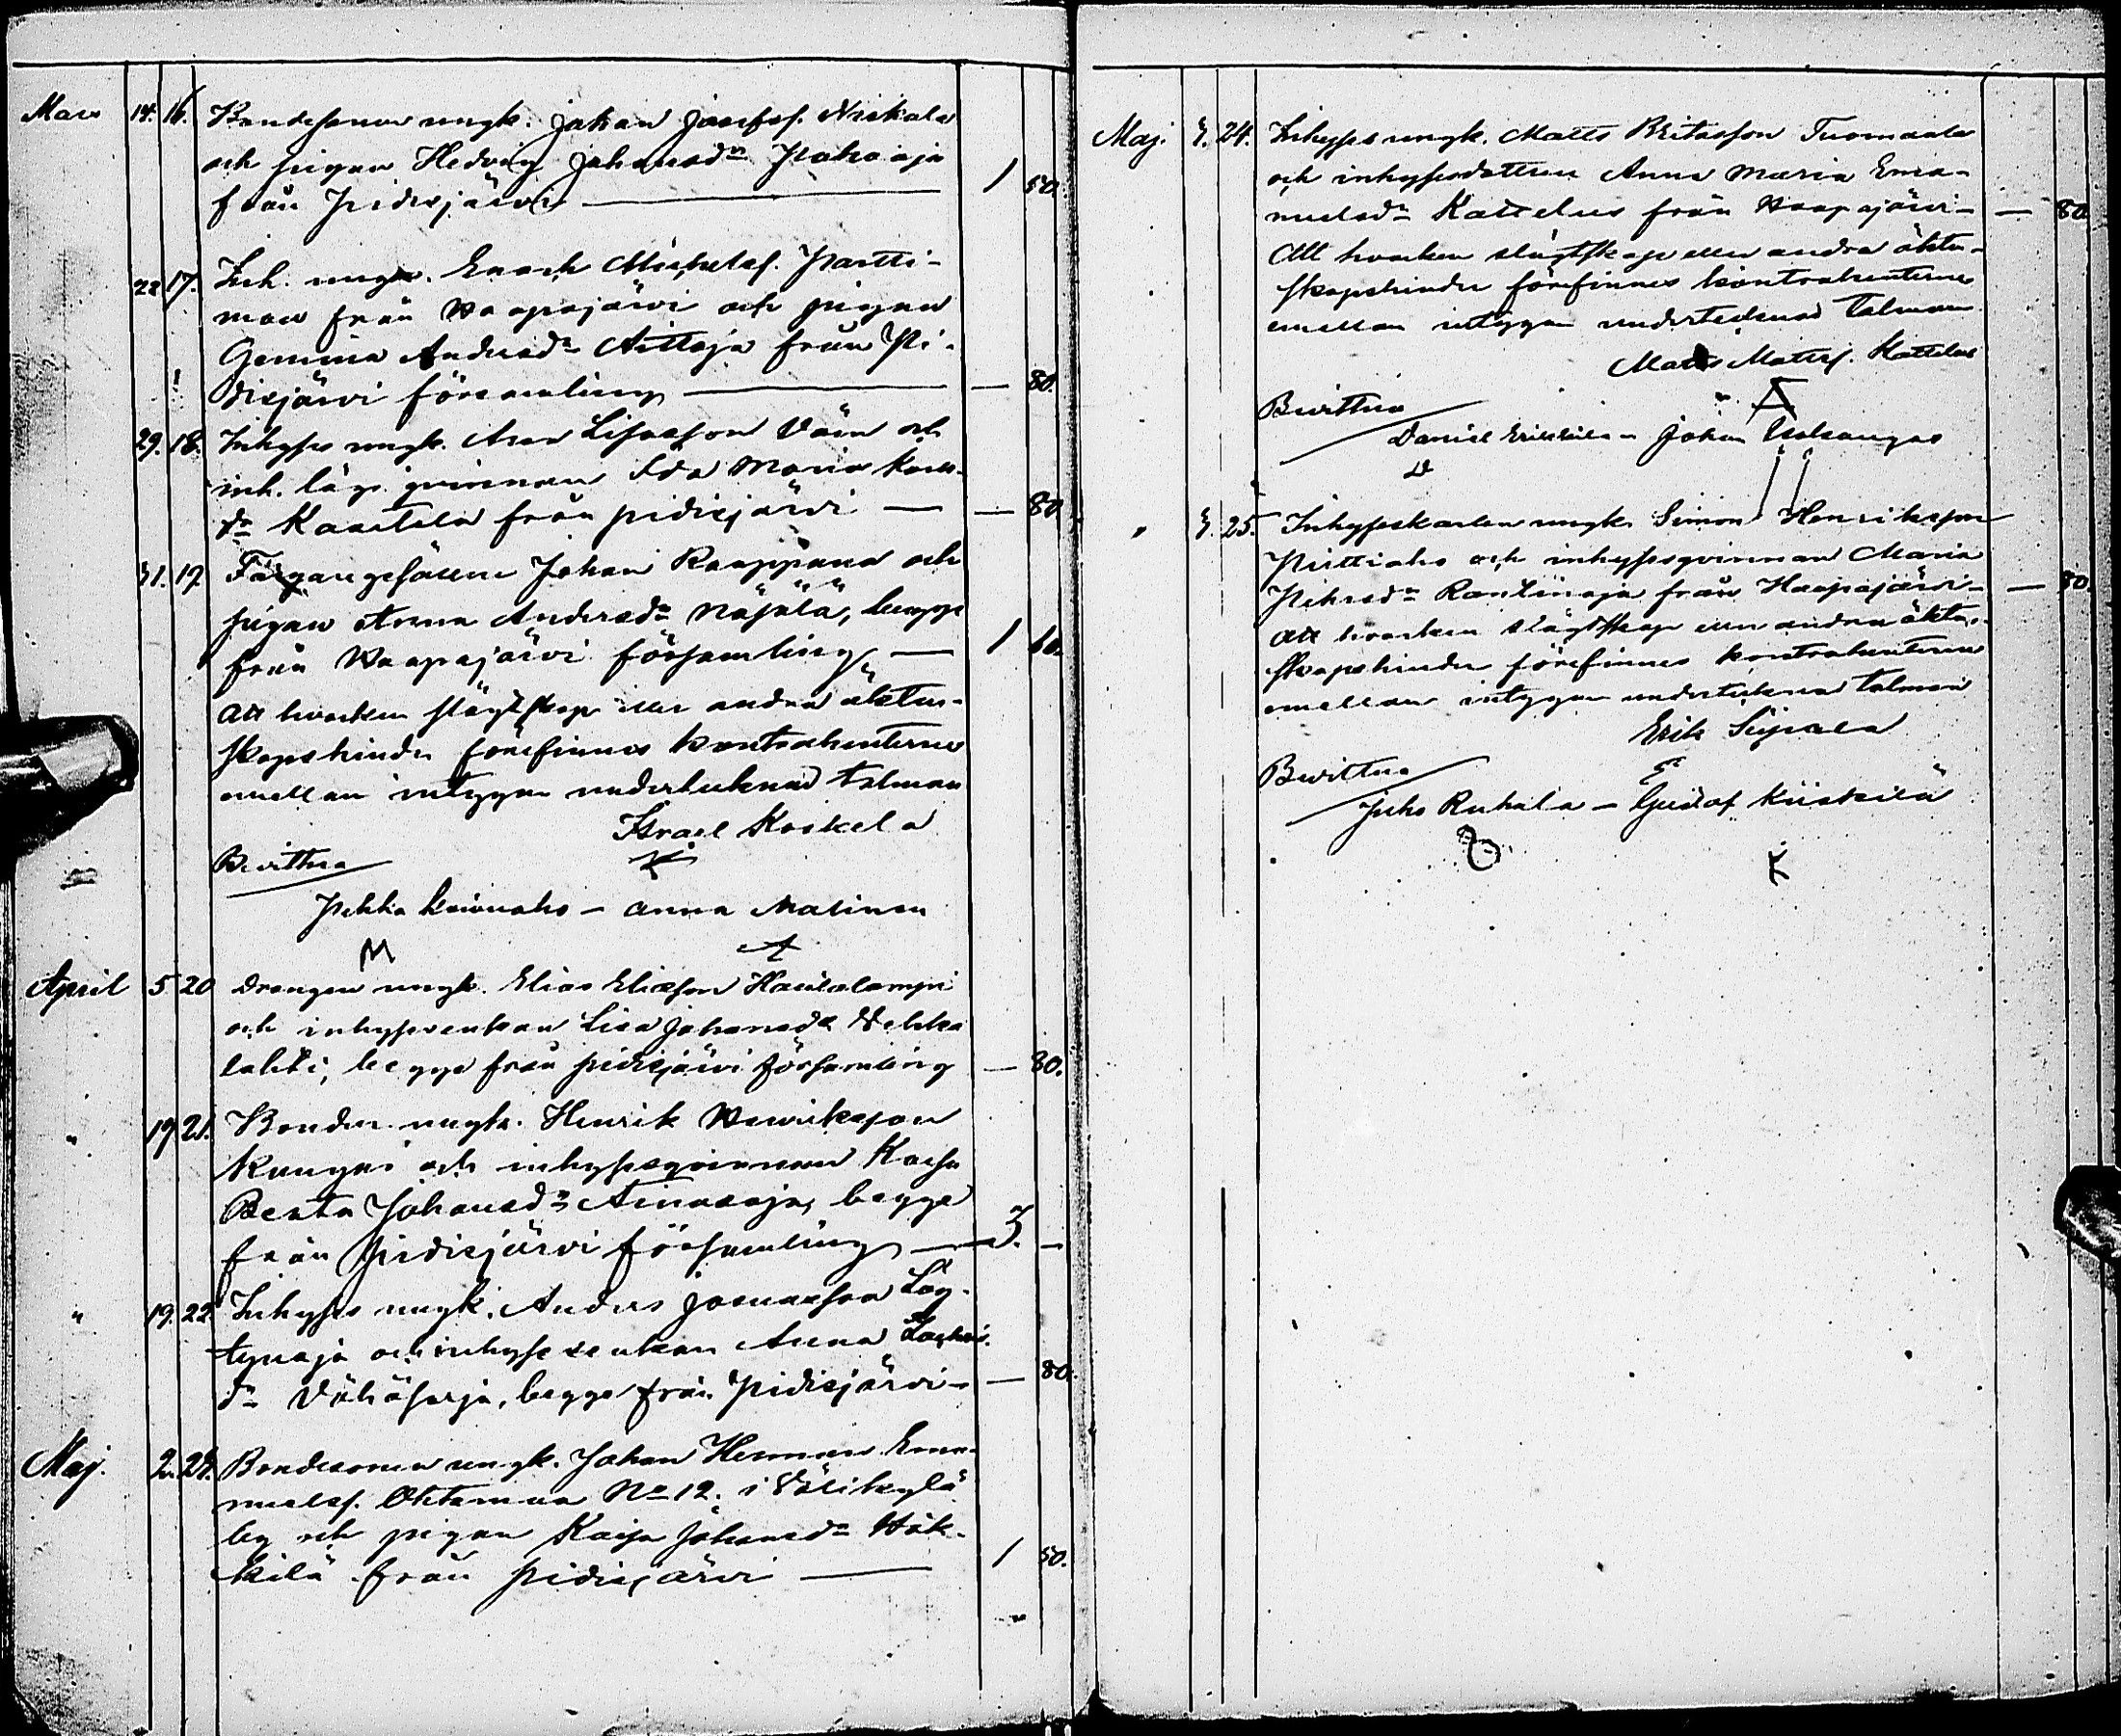 Mars 14. 16. Bondesonen ungk. Johan Josefss. Niskala
och pigan Hedvig Johansdr Pahaoja
från Pidisjärvi — 1 50.
22 17. Inh. ungk. Enoch Michelss. Partti-
mou från Haapajärvi och pigan
Gemima Andersdr Aittoja från Pi-
disjärvi församling — — 80.
29. 18. Inhyses ungk. Lisasson och
inh. läg. qvinnan Ida Maria
dr Kaartela från Pidisjärvi — — 80
31. 19 Johan Raappana och
pigan Anna Andersdr Näjälä, begge
från Haapajärvi församling — 1 60.
Att hvarken slägtskap eller andra äkten-
skapshinder förefinnes kontrahenterne
emellan intygar undertecknad talman
Israel Koskela
Bevittna
Pekka Koivuaho – Anna Matinen
M A
April 5 20 Drengen ungk. Elias Eliasson Hautalampi
och inhysesenkan Lisa Johansdr Vehka
lahti, begge från Pidisjärvi församling — 80.
" 19 21. Bonden ungk. Henrik Henriksson
Kangas och inhysesqvinnan Kaisa
Beata Johansdr Ainasoja, begge
från Pidisjärvi församling — 3. —
" 19. 22. Inhyses ungk. Anders Löy-
tynoja och inhysesenkan Anna
dr Vähäsarja, begge från Pidisjärvi — — 80.
Maj. 2. 23. Bondesonen ungk. Johan Herman Ema-
nuelss. Ohtamaa No 12. i Välikylä
by och pigan Kaisa Johansdr Häk-
kilä från Pidisjärvi — 1 50.
Maj. 3. 24. Inhyses ungk. Matts Britasson Tuomaala
och inhysesdottren Anna Maria Ema-
nuelsdr Kattelus från Haapajärvi — — 80
Att hvarken slägtskap eller andra äkten-
skapshinder förefinnes kontrahenterne
emellan intygar undertecknad talman
Matts Mattss. Kattelus
Bevittna A
Daniel Erkkilä – Johan
D
" 3. 25. Inhyseskarlen ungk. Simon Henriksson
Pirttiaho och inhysesqvinnan Maria
Pehrsdr Rautinoja från Haapajärvi — — 80.
Att hvarken slägtskap eller andra äkten-
skapshinder förefinnes kontrahenterne
emellan intygar undertecknad talman
Erik Seppälä
Bevittna E
Juho Ruhala – Gustaf Kiiskilä
K